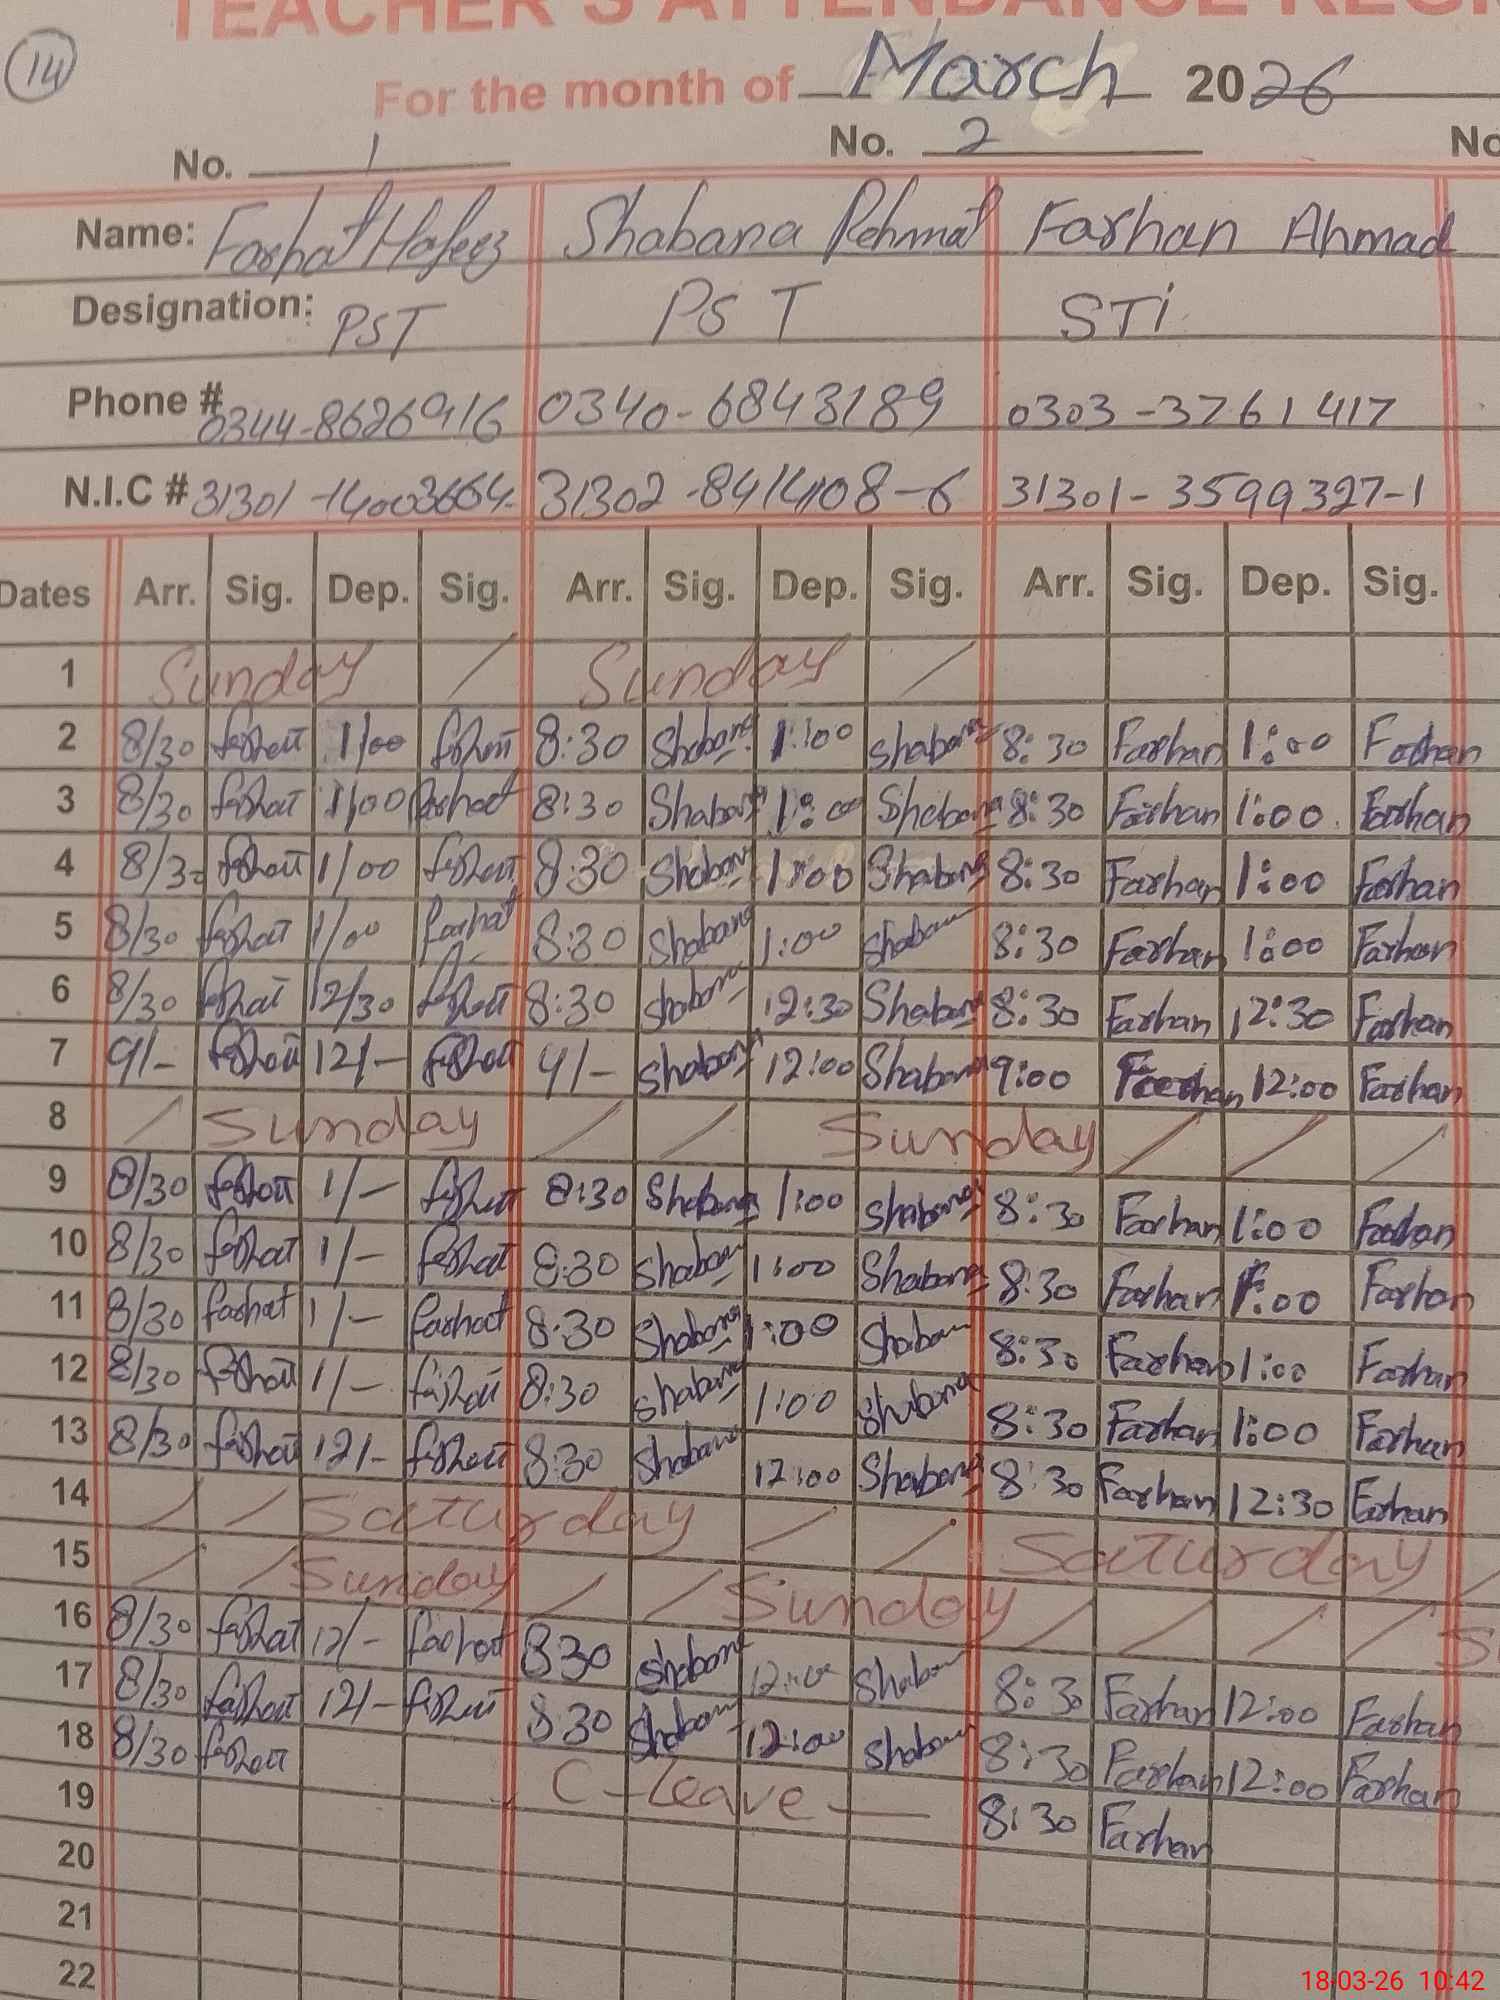 14
TEACHER'S ATTENDANCE REGI
For the month of March 2026
No. 1 No. 2 No
Name: Farhat Hafeez Shabana Rehmat Farhan Ahmad
Designation: PST PST STi
Phone # 0344-8626916 0340-6843189 0303-3761417
N.I.C # 31301-14003664- 31302-8414108-6 31301-3599327-1
Dates Arr. Sig. Dep. Sig. Arr. Sig. Dep. Sig. Arr. Sig. Dep. Sig.
1 Sunday / Sunday /
2 8/30 farhat 1/00 farhat 8:30 Shabana 1:00 shabana 8:30 Farhan 1:00 Farhan
3 8/30 farhat 1/00 farhat 8:30 Shabana 1:00 Shabana 8:30 Farhan 1:00 Farhan
4 8/30 farhat 1/00 farhat 8:30 Shabana 1:00 Shabana 8:30 Farhan 1:00 Farhan
5 8/30 farhat 1/00 farhat 8:30 Shabana 1:00 Shabana 8:30 Farhan 1:00 Farhan
6 8/30 farhat 12/30 farhat 8:30 shabana 12:30 Shabana 8:30 Farhan 12:30 Farhan
7 9/- farhat 12/- farhat 9/- Shabana 12:00 Shabana 9:00 Farhan 12:00 Farhan
8 / Sunday / / Sunday / / /
9 8/30 farhat 1/- farhat 8:30 Shabana 1:00 shabana 8:30 Farhan 1:00 Farhan
10 8/30 farhat 1/- farhat 8:30 Shabana 1:00 Shabana 8:30 Farhan 1:00 Farhan
11 8/30 farhat 1/- farhat 8:30 Shabana 1:00 Shabana 8:30 Farhan 1:00 Farhan
12 8/30 farhat 1/- farhat 8:30 shabana 1:00 Shabana 8:30 Farhan 1:00 Farhan
13 8/30 farhat 12/- farhat 8:30 Shabana 12:00 Shabana 8:30 Farhan 12:30 Farhan
14 / / Saturday / / Saturday /
15 / / Sunday / / Sunday / / / / S
16 8/30 farhat 12/- farhat 8:30 Shabana 12:00 Shabana 8:30 Farhan 12:00 Farhan
17 8/30 farhat 12/- farhat 8:30 Shabana 12:00 Shabana 8:30 Farhan 12:00 Farhan
18 8/30 farhat C-Leave — 8:30 Farhan
19
20
21
22
18-03-26 10:42